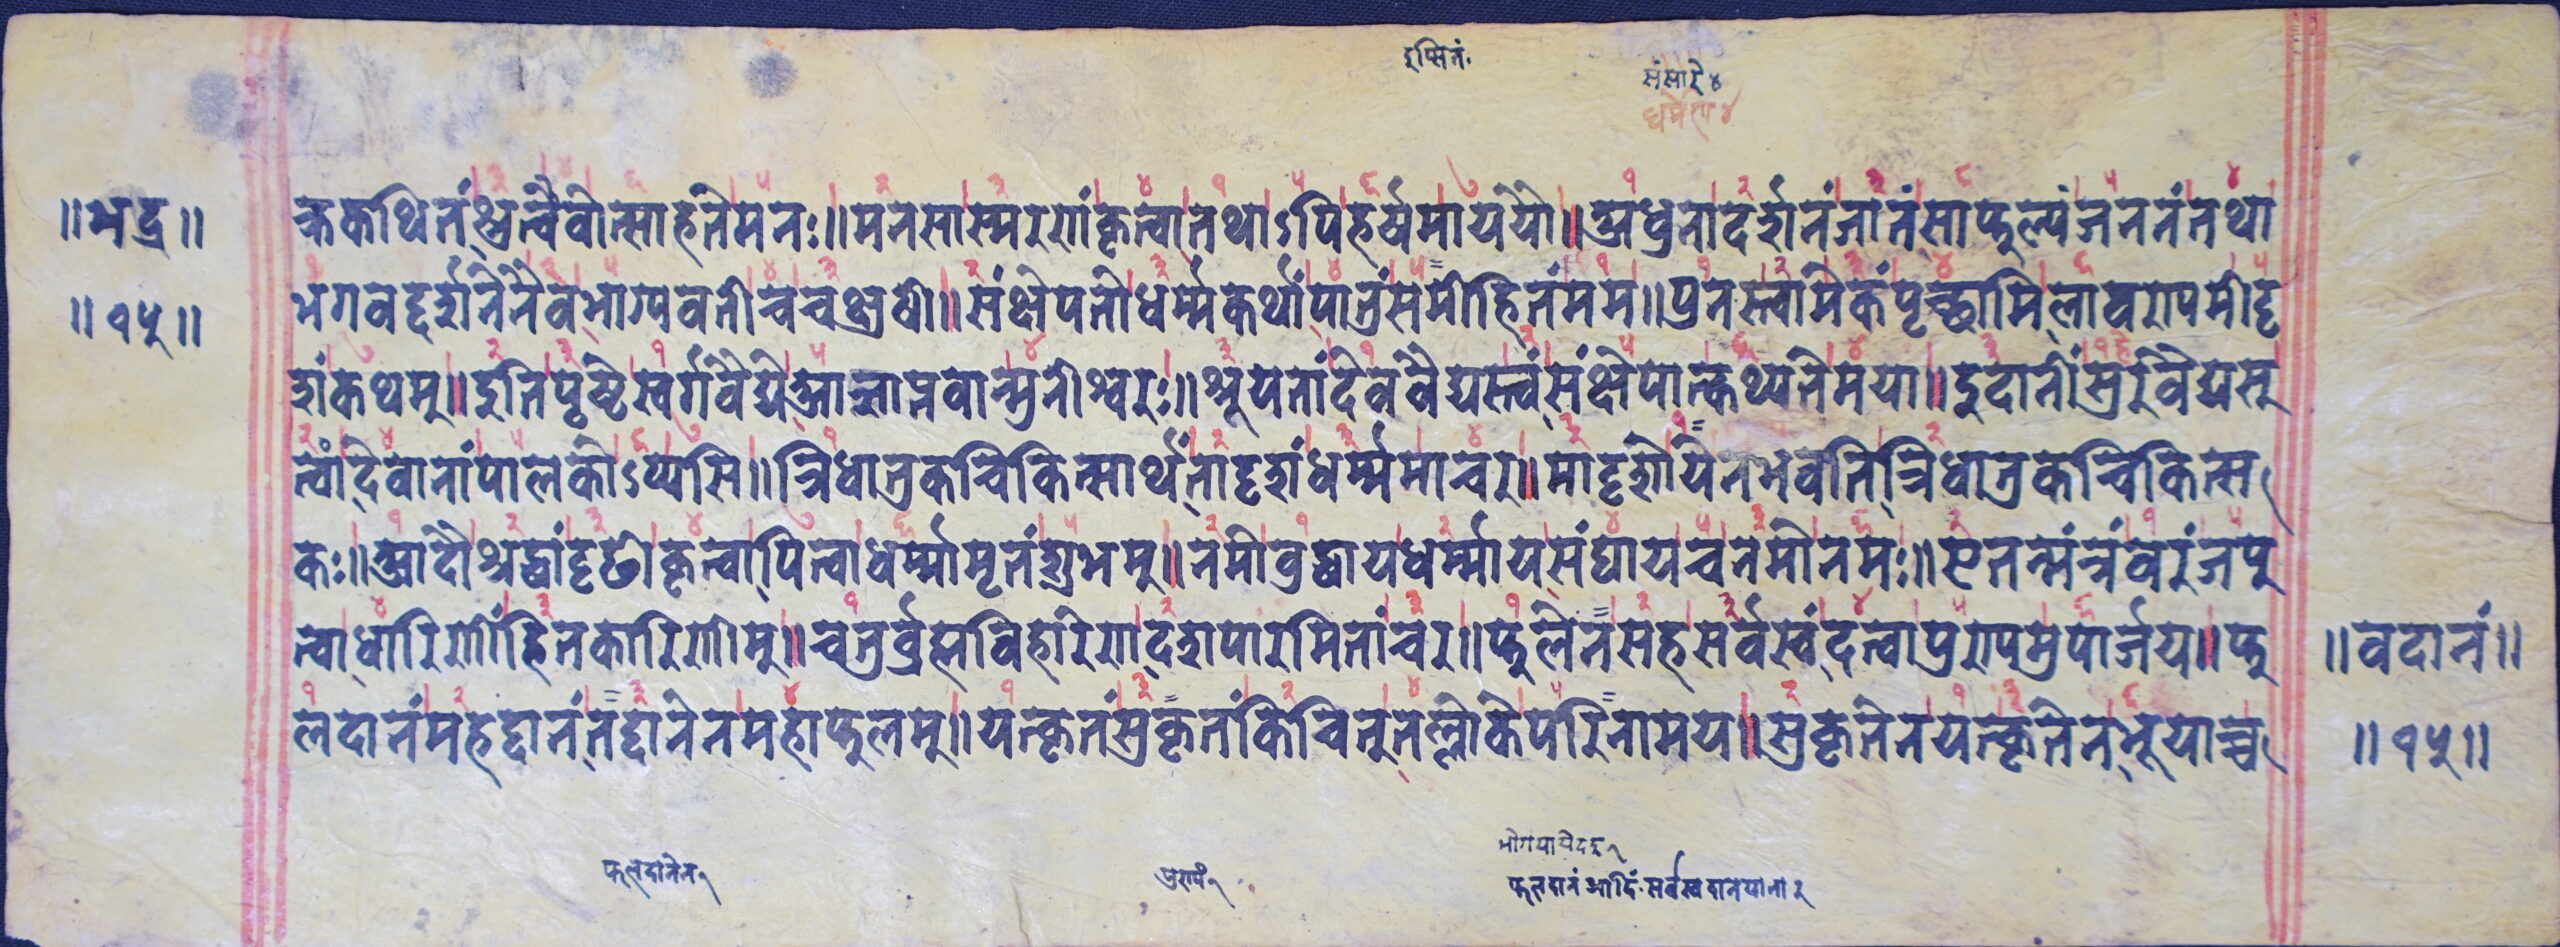 इप्सितं
संसारे ४
॥भद्र॥
॥१५॥
क्तकथितं श्रुत्वैवोत्साहतेमनः॥मनसास्मरणं कृत्वा तथाऽपिहर्यमाययौ॥अधुनादर्शनं जातं साफल्यं जननं तथा
भगवद्दर्शनेनैव भाग्यवती च चक्षुषी॥संक्षेपतो धर्म्मकथां पातुं समीहितं मम॥पुनस्त्वामेकं पृच्छामि लावण्यमीदृ
शं कथम्॥इति पृष्टे स्वर्गवैद्ये आज्ञाप्तवान्मुनीश्वरः॥श्रूयतां देववैद्यस्त्वं संक्षेपात्कथ्यते मया॥इदानीं सुरिवैद्यस्
त्वं देवानां पालकोऽप्यसि॥त्रिधातुकचिकित्सार्थं तादृशं धर्म्ममाचर॥मादृशो येन भवति त्रिधातुकचिकित्स
कः॥आदौ श्रद्धां दृढीकृत्वा पित्वा धर्म्मामृतं शुभम्॥नमो बुद्धाय धर्म्माय संघाय च नमो नमः॥एतन्मंत्रं वरं जप्
त्वा धारिणीं हितकारिणीम्॥चतुर्ब्रह्मविहारेण दशपारमितां चर॥फलेन सह सर्वस्वं दत्वा पुण्यमुपार्जय॥फ
लदानं महद्दानं तद्दानेन महाफलम्॥यत्कृतं सुकृतं किंचित् तल्लोके परिनामय॥सुकृतेन यत्कृतेन भूयाच्च
॥वदानं॥
॥१५॥
फलदानेन
पुण्यं
फलदानं आदिं सर्वस्वदानयाना २